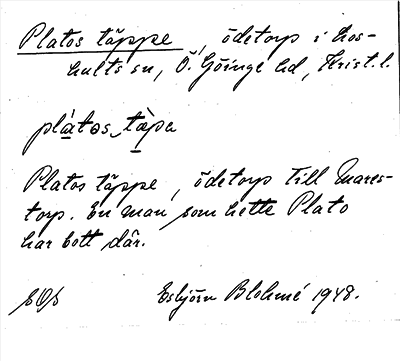 Platos täppe, ödetorp i Hos-
hults sn, Ö. Göinge hd, Krist. l.
plátos tàpa
Platos täppe, ödetorp till Mares-
torp. En man som hette Plato
har bott där.
Esbjörn Blohmé 1948.